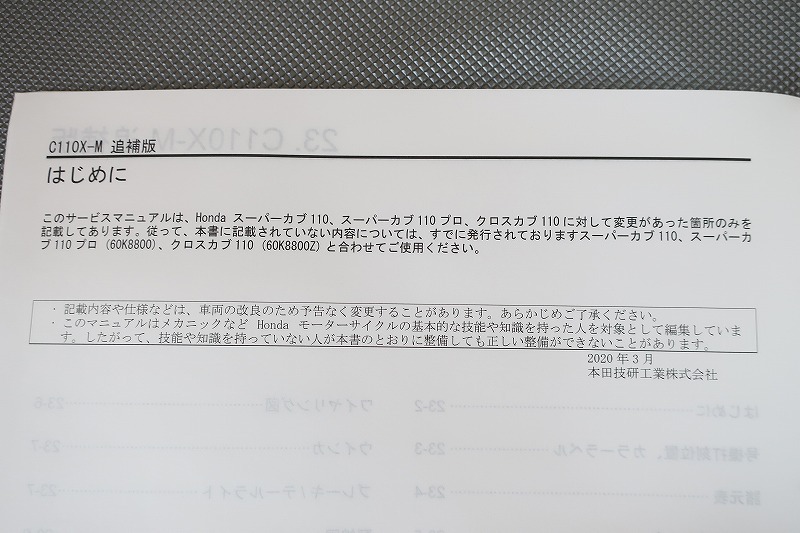 C110X-M 追補版
はじめに
このサービスマニュアルは、Honda スーパーカブ110、スーパーカブ110 プロ、クロスカブ110 に対して変更があった箇所のみを
記載してあります。従って、本書に記載されていない内容については、すでに発行されておりますスーパーカブ110、スーパーカ
ブ110 プロ (60K8800)、クロスカブ110 (60K8800Z) と合わせてご使用ください。
・記載内容や仕様などは、車両の改良のため予告なく変更することがあります。あらかじめご了承ください。
・このマニュアルはメカニックなど Honda モーターサイクルの基本的な技能や知識を持った人を対象として編集していま
す。したがって、技能や知識を持っていない人が本書のとおりに整備しても正しい整備ができないことがあります。
2020 年 3 月
本田技研工業株式会社
23. C110X-M 追補版
はじめに 23-2
号機打刻位置，カラーラベル 23-3
諸元表 23-4
ワイヤリング図 23-6
ウインカ 23-7
ブレーキ/テールライト 23-7